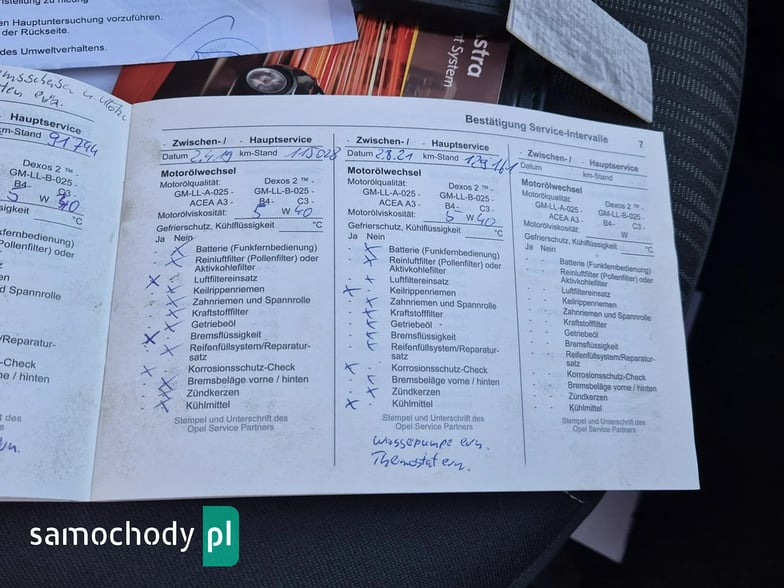 en Hauptuntersuchung vorzuführen.
der Rückseite.
des Umweltverhaltens.
Astra
System
Hauptservice
km-Stand 91794
Dexos 2 ™ -
GM-LL-B-025 -
B4- C3 -
5 W 40
sigkeit °C
nkfernbedienung)
Pollenfilter) oder
nd Spannrolle
/Reparatur-
-Check
ne / hinten
t des
Bestätigung Service-Intervalle 7
Zwischen- / Hauptservice
Datum 2.4.19 km-Stand 115028
Motorölwechsel
Motorölqualität: Dexos 2 ™ -
GM-LL-A-025 - GM-LL-B-025 -
ACEA A3 - B4- C3 -
Motorölviskosität: 5 W 40
Gefrierschutz, Kühlflüssigkeit °C
Ja Nein
Batterie (Funkfernbedienung)
Reinluftfilter (Pollenfilter) oder
Aktivkohlefilter
Luftfiltereinsatz
Keilrippenriemen
Zahnriemen und Spannrolle
Kraftstofffilter
Getriebeöl
Bremsflüssigkeit
Reifenfüllsystem/Reparatur-
satz
Korrosionsschutz-Check
Bremsbeläge vorne / hinten
Zündkerzen
Kühlmittel
Stempel und Unterschrift des
Opel Service Partners
Zwischen- / Hauptservice
Datum 2.8.21 km-Stand
Motorölwechsel
Motorölqualität: Dexos 2 ™ -
GM-LL-A-025 - GM-LL-B-025 -
ACEA A3 - B4- C3 -
Motorölviskosität: 5 W 40
Gefrierschutz, Kühlflüssigkeit °C
Ja Nein
Batterie (Funkfernbedienung)
Reinluftfilter (Pollenfilter) oder
Aktivkohlefilter
Luftfiltereinsatz
Keilrippenriemen
Zahnriemen und Spannrolle
Kraftstofffilter
Getriebeöl
Bremsflüssigkeit
Reifenfüllsystem/Reparatur-
satz
Korrosionsschutz-Check
Bremsbeläge vorne / hinten
Zündkerzen
Kühlmittel
Stempel und Unterschrift des
Opel Service Partners
Wasserpumpe ern.
Thermostat ern.
Zwischen- / Hauptservice
Datum km-Stand
Motorölwechsel
Motorölqualität: Dexos 2 ™ -
GM-LL-A-025 - GM-LL-B-025 -
ACEA A3 - B4- C3 -
Motorölviskosität: W
Gefrierschutz, Kühlflüssigkeit °C
Ja Nein
Batterie (Funkfernbedienung)
Reinluftfilter (Pollenfilter) oder
Aktivkohlefilter
Luftfiltereinsatz
Keilrippenriemen
Zahnriemen und Spannrolle
Kraftstofffilter
Getriebeöl
Bremsflüssigkeit
Reifenfüllsystem/Reparatur-
satz
Korrosionsschutz-Check
Bremsbeläge vorne / hinten
Zündkerzen
Kühlmittel
Stempel und Unterschrift des
Opel Service Partners
samochody pl